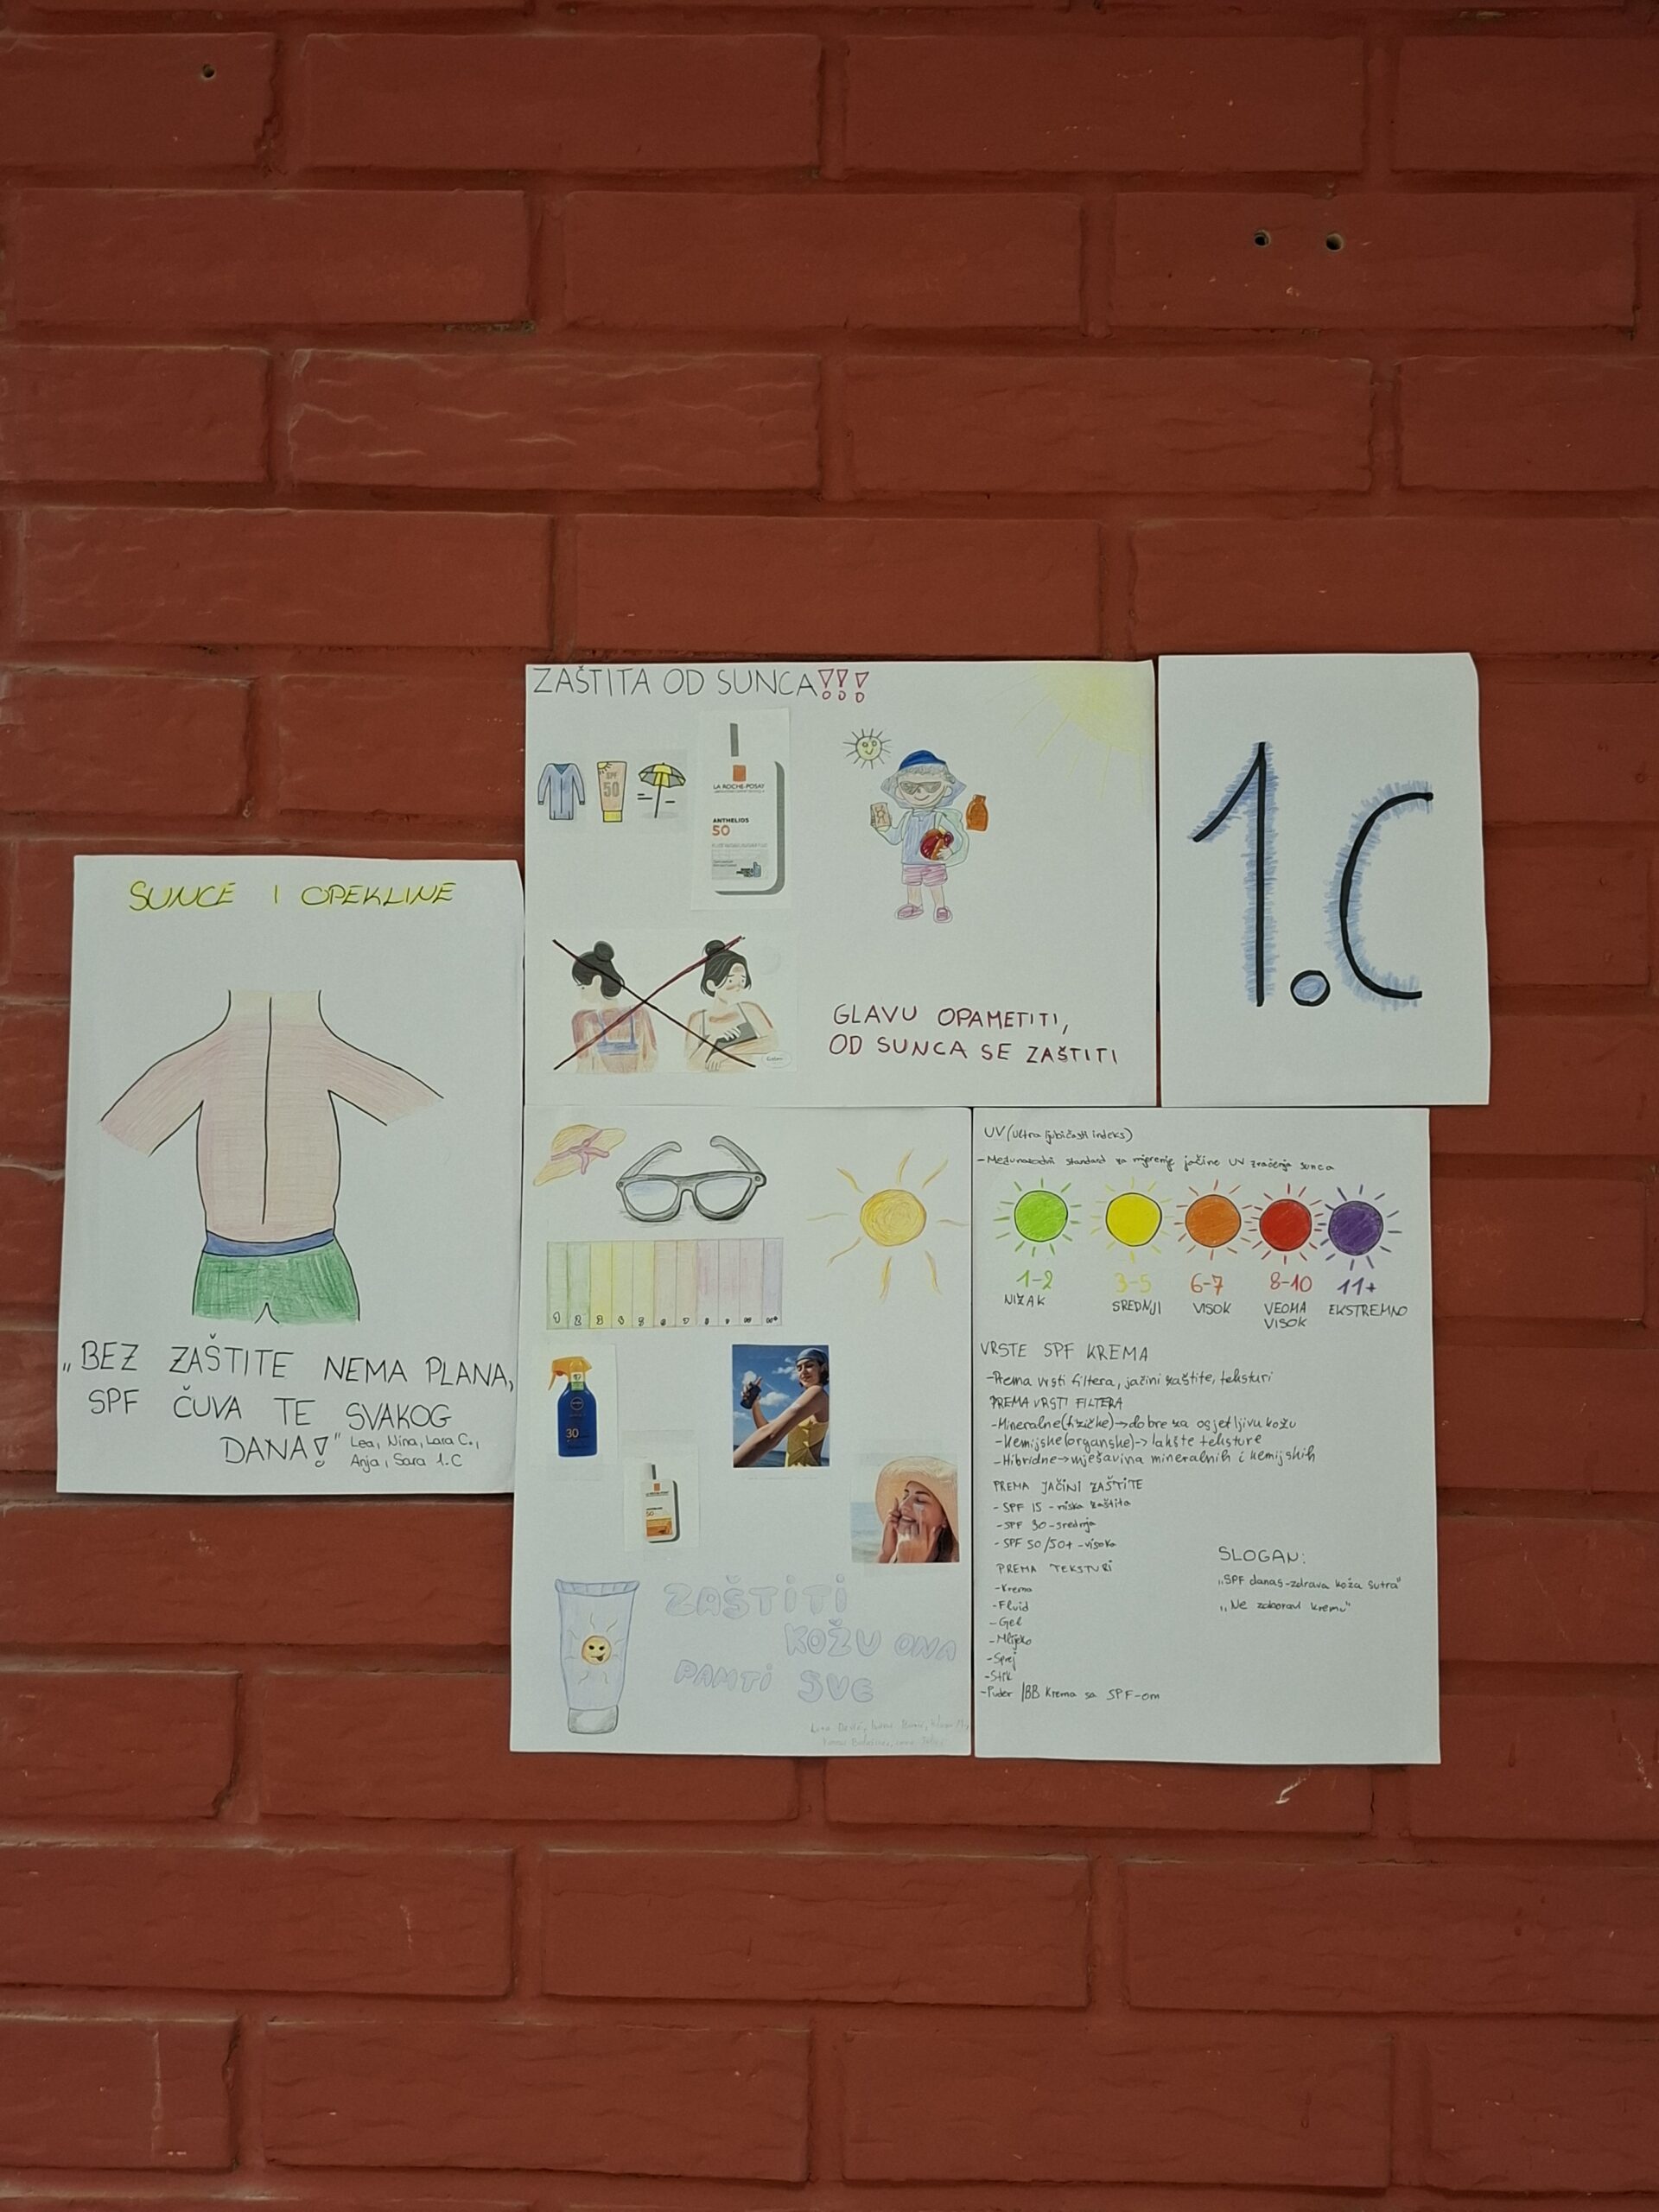 SUNCE I OPEKLINE
„BEZ ZAŠTITE NEMA PLANA,
SPF ČUVA TE SVAKOG
DANA!"
Lea, Nina, Lara C.,
Anja, Sara 1.C
ZAŠTITA OD SUNCA!!!
SPF
50
LA ROCHE-POSAY
ANTHELIOS
50
GLAVU OPAMETITI,
OD SUNCA SE ZAŠTITI
1.C
1 2 3 4 5 6 7 8 9 10 11+
30
50
ZAŠTITI
KOŽU ONA
PAMTI SVE
UV (ultra ljubičasti indeks)
-Međunarodni standard za mjerenje jačine UV zračenja sunca
1-2 3-5 6-7 8-10 11+
NIZAK SREDNJI VISOK VEOMA VISOK EKSTREMNO
VRSTE SPF KREMA
-Prema vrsti filtera, jačini zaštite, teksturi
PREMA VRSTI FILTERA
-Mineralne(fizičke)→dobre za osjetljivu kožu
-Kemijske(organske)->lakše teksture
-Hibridne→mješavina mineralnih i kemijskih
PREMA JAČINI ZAŠTITE
- SPF 15 - niska zaštita
- SPF 30 -srednja
- SPF 50/50+ -visoka
PREMA TEKSTURI
-Krema
-Fluid
-Gel
-Mlijeko
-Sprej
-Stik
-Puder /BB krema sa SPF-om
SLOGAN:
„SPF danas-zdrava koža sutra"
„Ne zaboravi kremu"